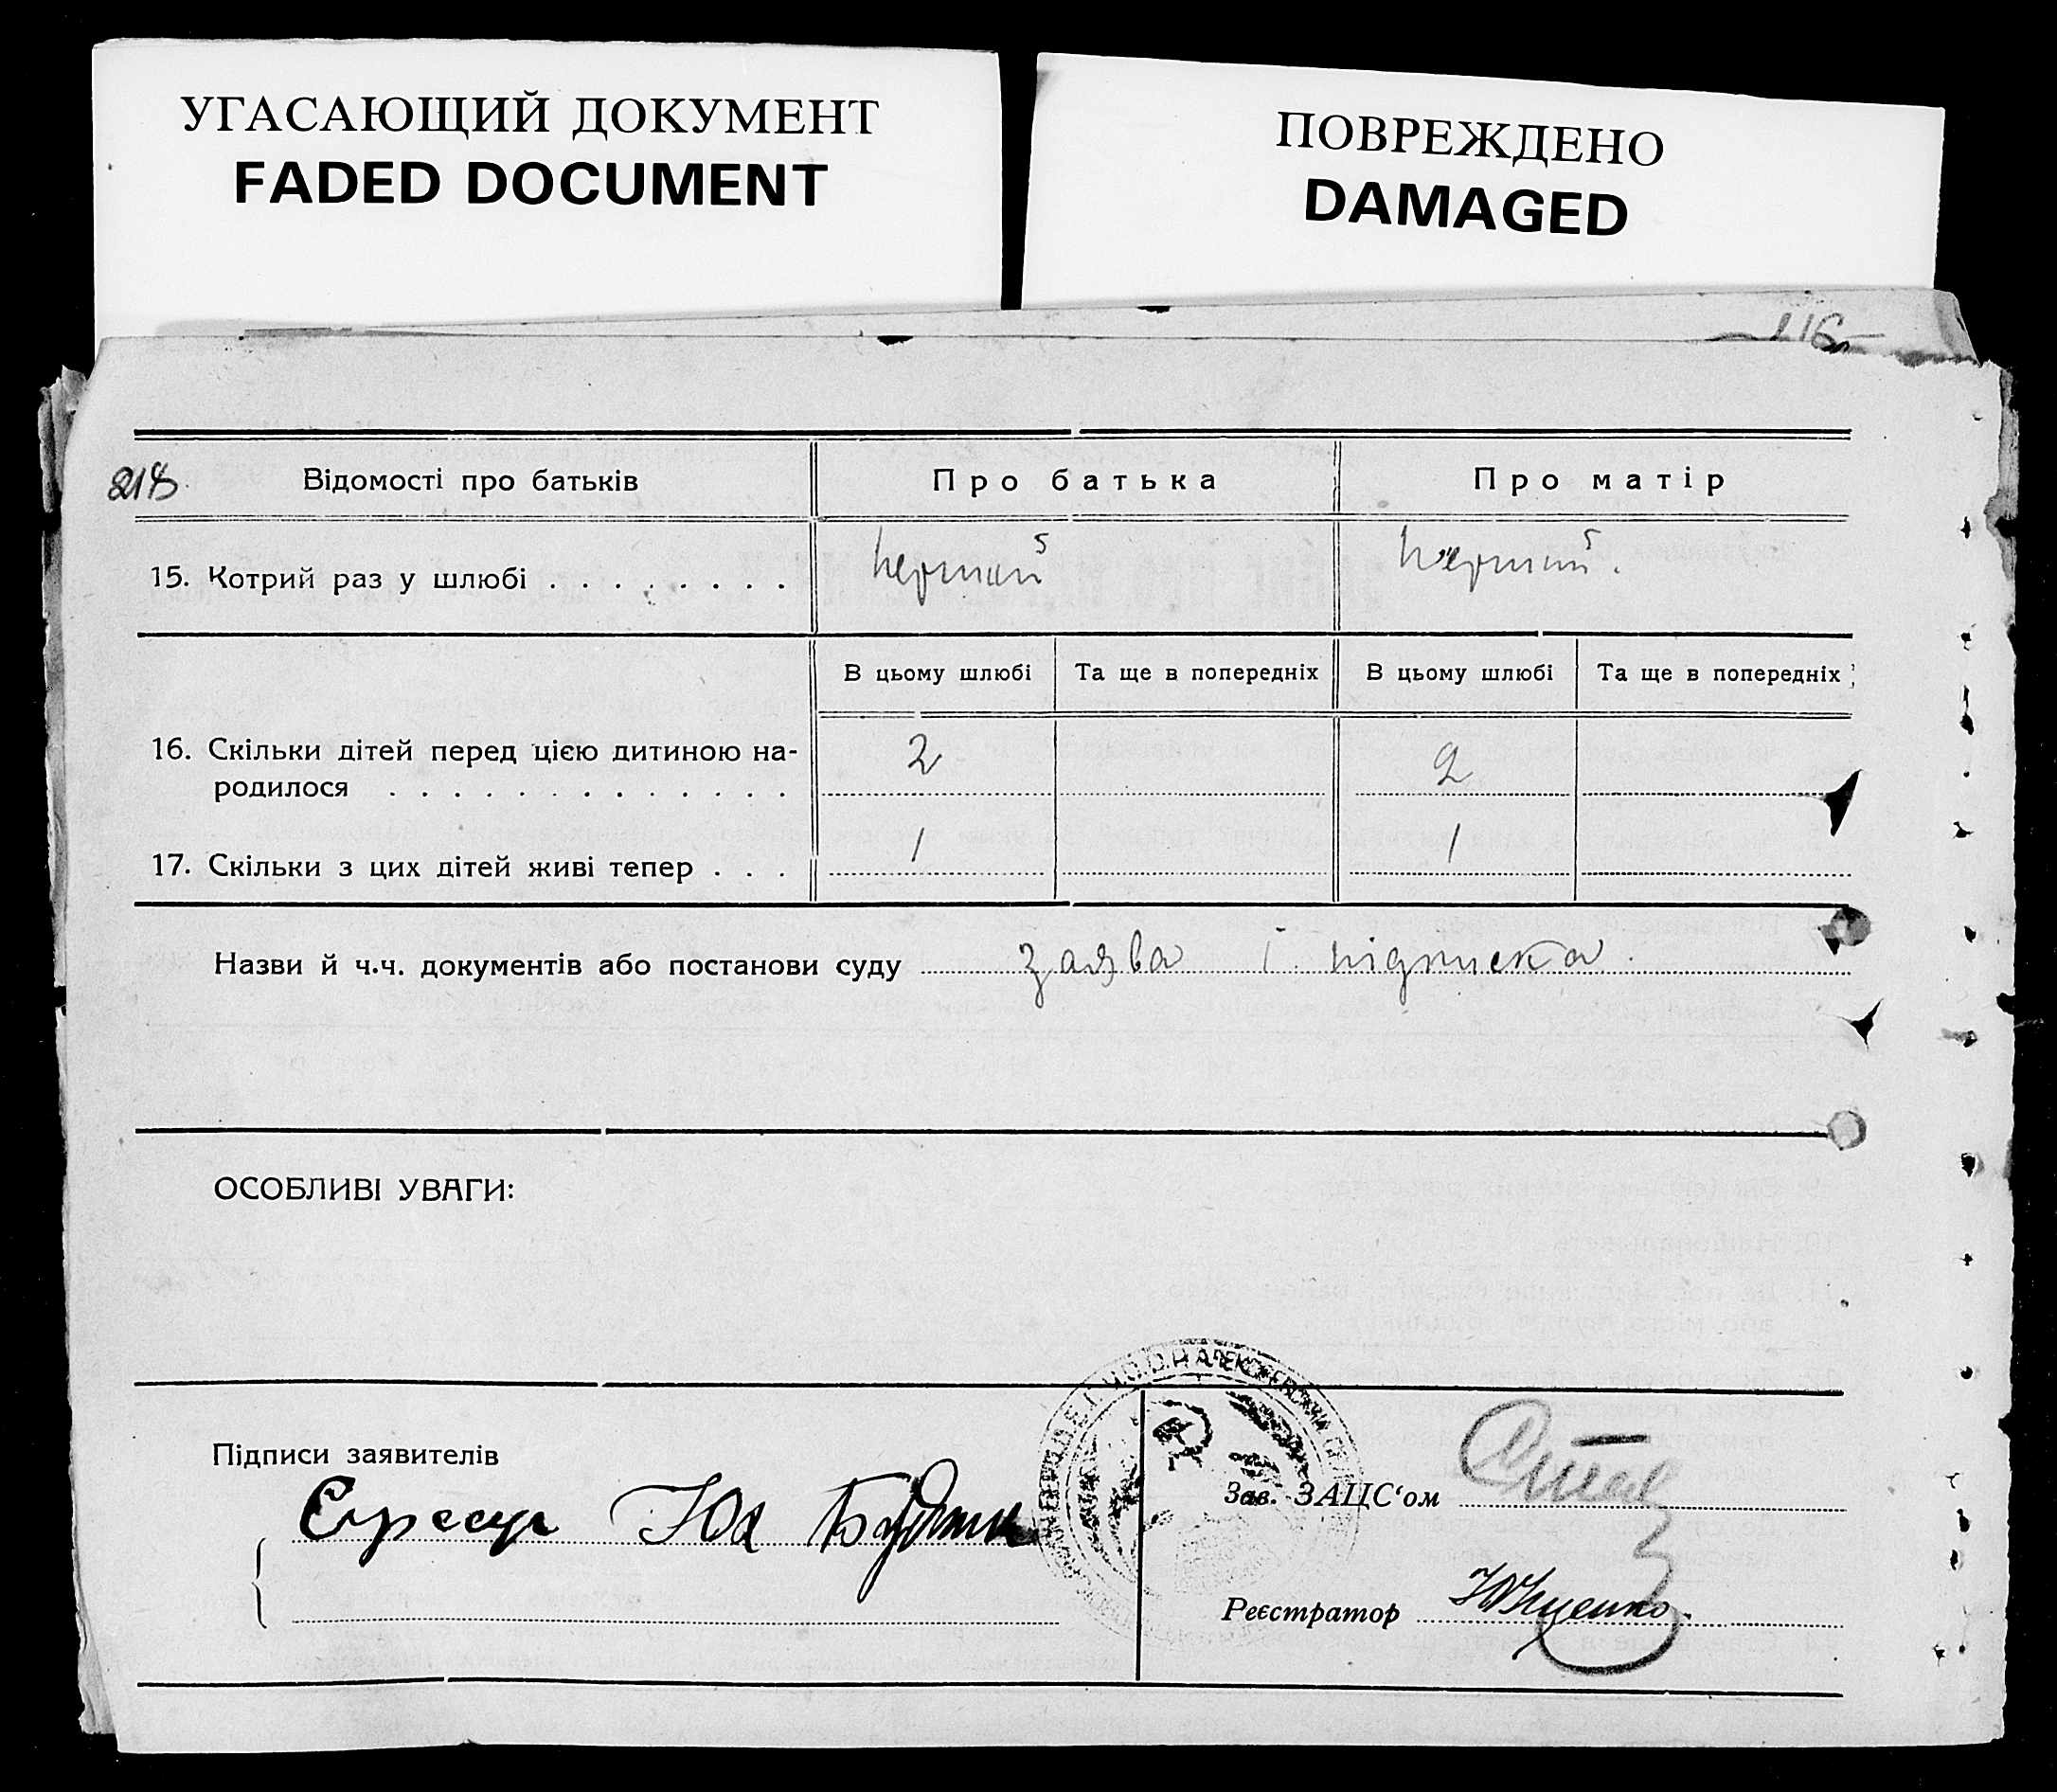 УГАСАЮЩИЙ ДОКУМЕНТ
FADED DOCUMENT
ПОВРЕЖДЕНО
DAMAGED
116
218
Відомості про батьків Про батька Про матір
15. Котрий раз у шлюбі . . . . . . . . перший перший.
В цьому шлюбі Та ще в попередніх В цьому шлюбі Та ще в попередніх
16. Скільки дітей перед цією дитиною на-
родилося . . . . . . . . . . . . . . 2 2
17. Скільки з цих дітей живі тепер . . . 1 1
Назви й ч.ч. документів або постанови суду заява і підписка.
ОСОБЛИВІ УВАГИ:
Підписи заявителів
Зав. ЗАЦС‘ом
Реєстратор